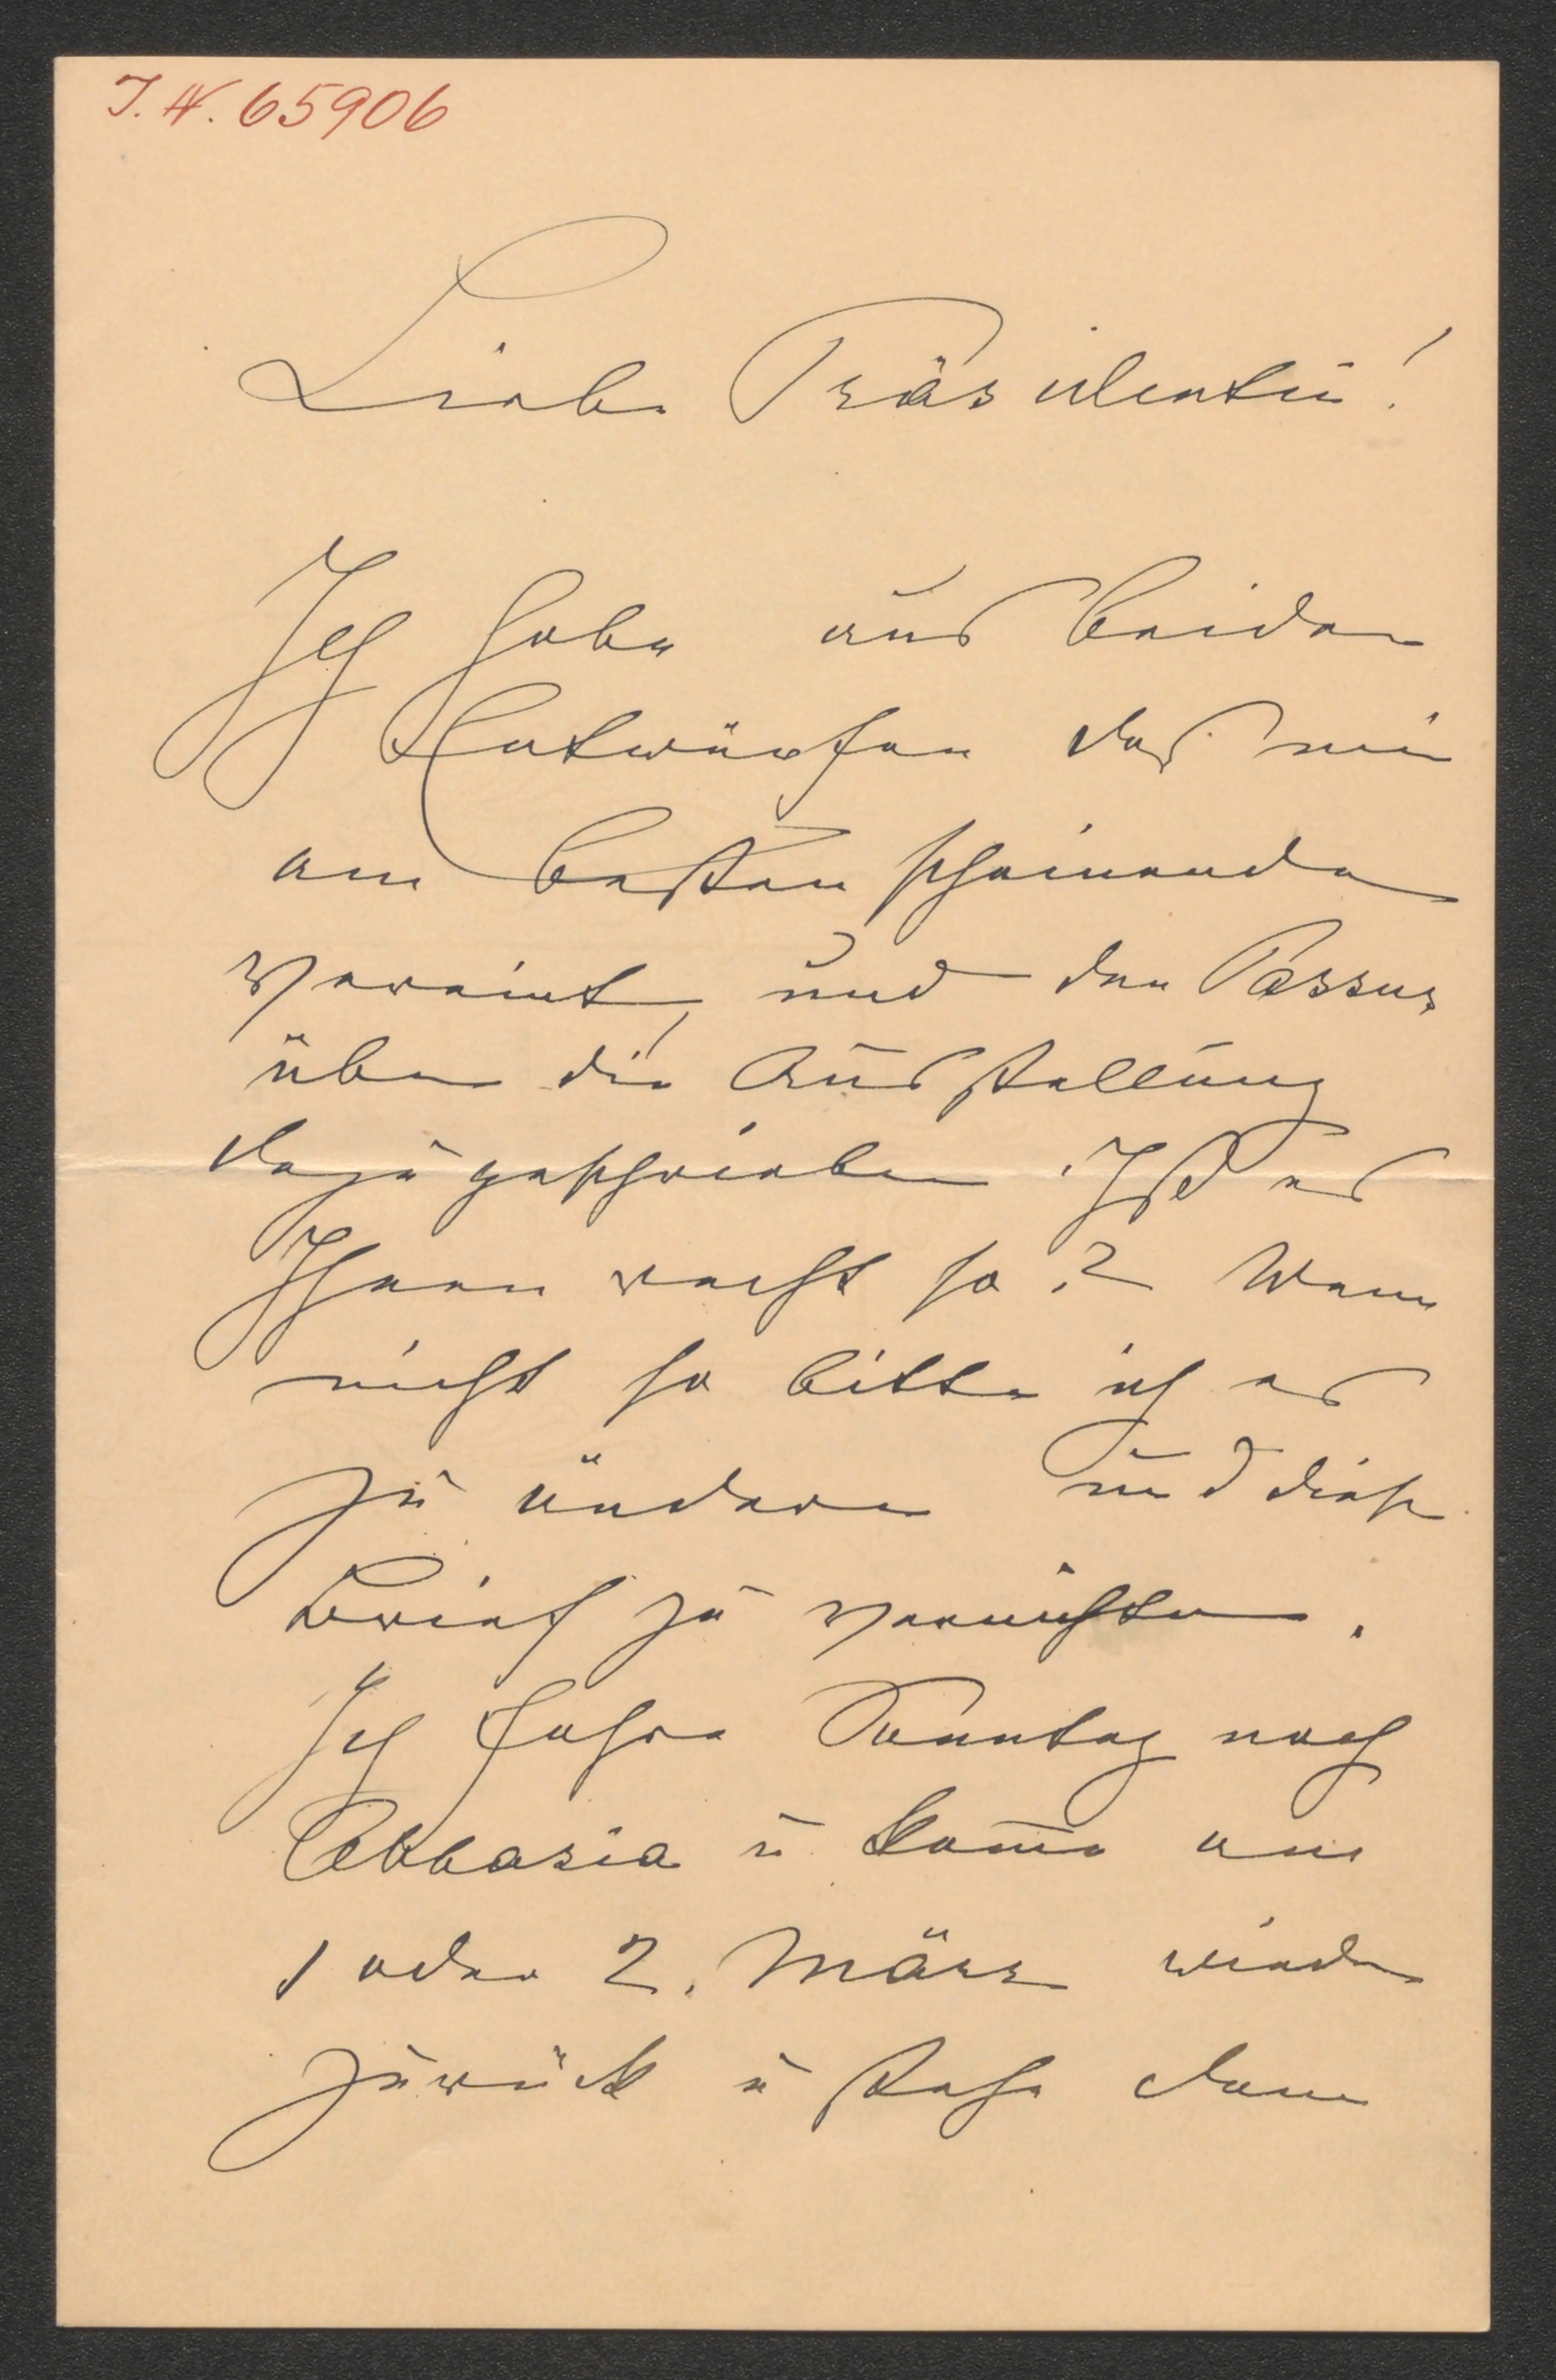 J. N. 65906
Liebe Präsidentin!
Ich habe aus beiden
Entwürfen das mir
am besten scheinende
vereint, und den Passus
über die Ausstellung
dazu geschrieben. Ist es
Ihnen recht so? Wenn
nicht so bitte ich es
zu ändern und diese
Brief zu vernichten.
Ich fahre Sonntag nach
Abbazia u kom̄e am
1 oder 2. März wieder
zurück u stehe dann